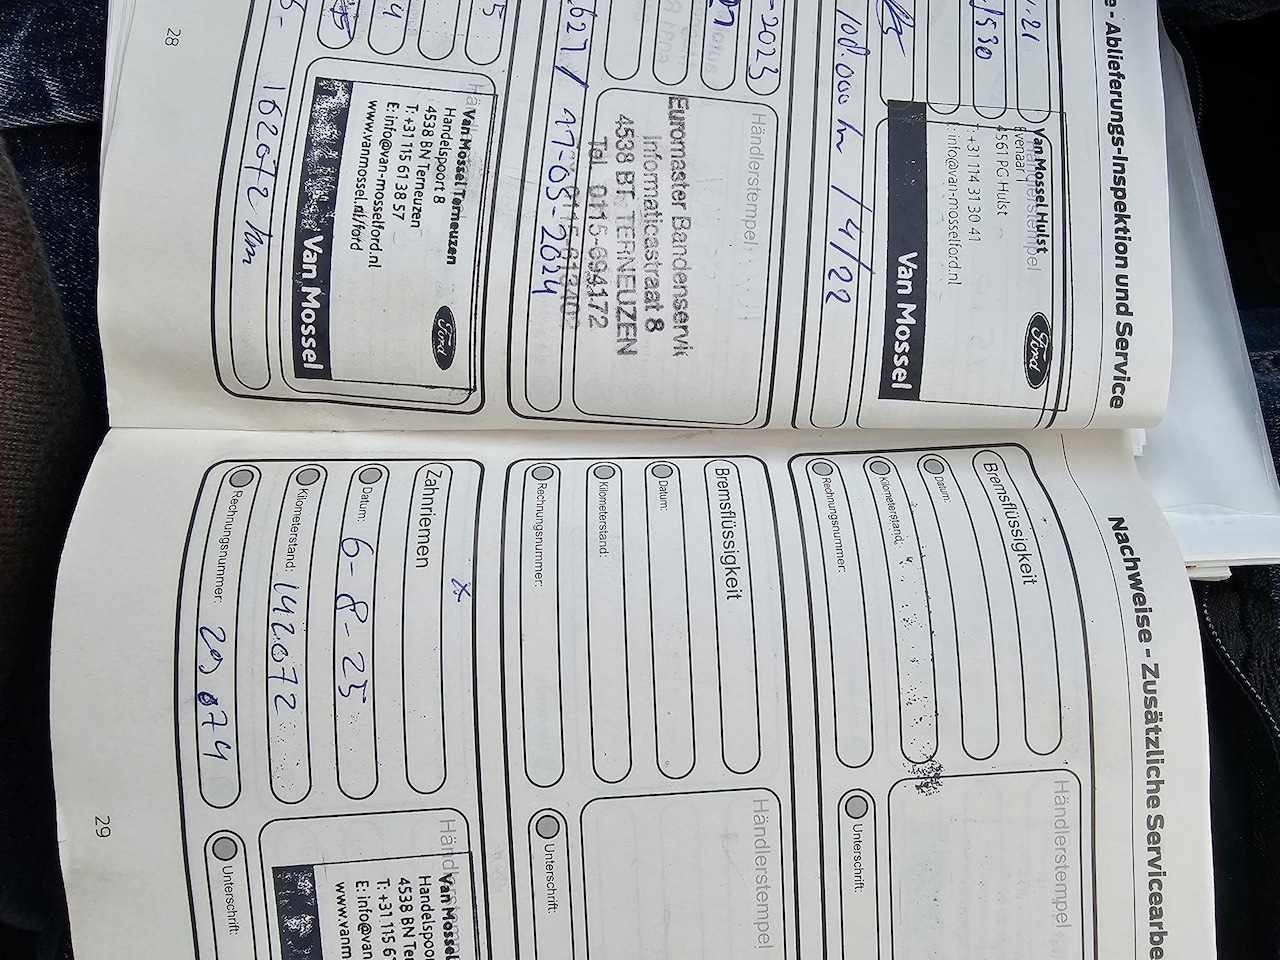 e - Ablieferungs-Inspektion und Service
Händlerstempel
Van Mossel Hulst
4561 PG Hulst
+31 114 31 30 41
info@van-mosselford.nl
Ford
Van Mossel
100.000 km / 4/22
-2023
Händlerstempel
Euromaster Bandenservi
Informaticastraat 8
4538 BT TERNEUZEN
Tel. 0115-694172
17-05-2024
5
4
Van Mossel Terneuzen
Handelspoort 8
4538 BN Terneuzen
T: +31 115 61 38 57
E: info@van-mosselford.nl
www.vanmossel.nl/ford
Ford
Van Mossel
162072 km
28
Nachweise - Zusätzliche Servicearbe
Bremsflüssigkeit
Datum:
Kilometerstand:
Rechnungsnummer:
Händlerstempel
Unterschrift:
Bremsflüssigkeit
Datum:
Kilometerstand:
Rechnungsnummer:
Händlerstempel
Unterschrift:
x
Zahnriemen
Datum: 6-8-25
Kilometerstand: 142072
Rechnungsnummer:
Van Mossel
Handelspoor
4538 BN Ter
T: +31 115 6
E: info@van
www.vanm
Unterschrift:
29